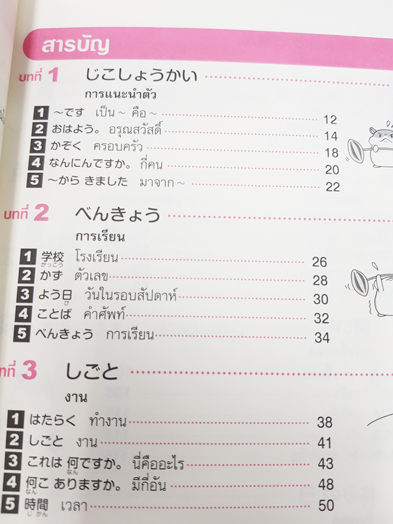 สารบัญ
บทที่ 1 じこしょうかい
การแนะนำตัว
1 ~です เป็น ~ คือ ~ 12
2 おはよう。 อรุณสวัสดิ์ 14
3 かぞく ครอบครัว 18
4 なんにんですか。 กี่คน 20
5 ~から きました มาจาก ~ 22
บทที่ 2 べんきょう
การเรียน
1 学校 โรงเรียน 26
がっこう
2 かず ตัวเลข 28
3 よう日 วันในรอบสัปดาห์ 30
び
4 ことば คำศัพท์ 32
5 べんきょう การเรียน 34
ทที่ 3 しごと
งาน
1 はたらく ทำงาน 38
2 しごと งาน 41
3 これは 何ですか。 นี่คืออะไร 43
なん
4 何こ ありますか。 มีกี่อัน 48
なん
5 時間 เวลา 50
じかん